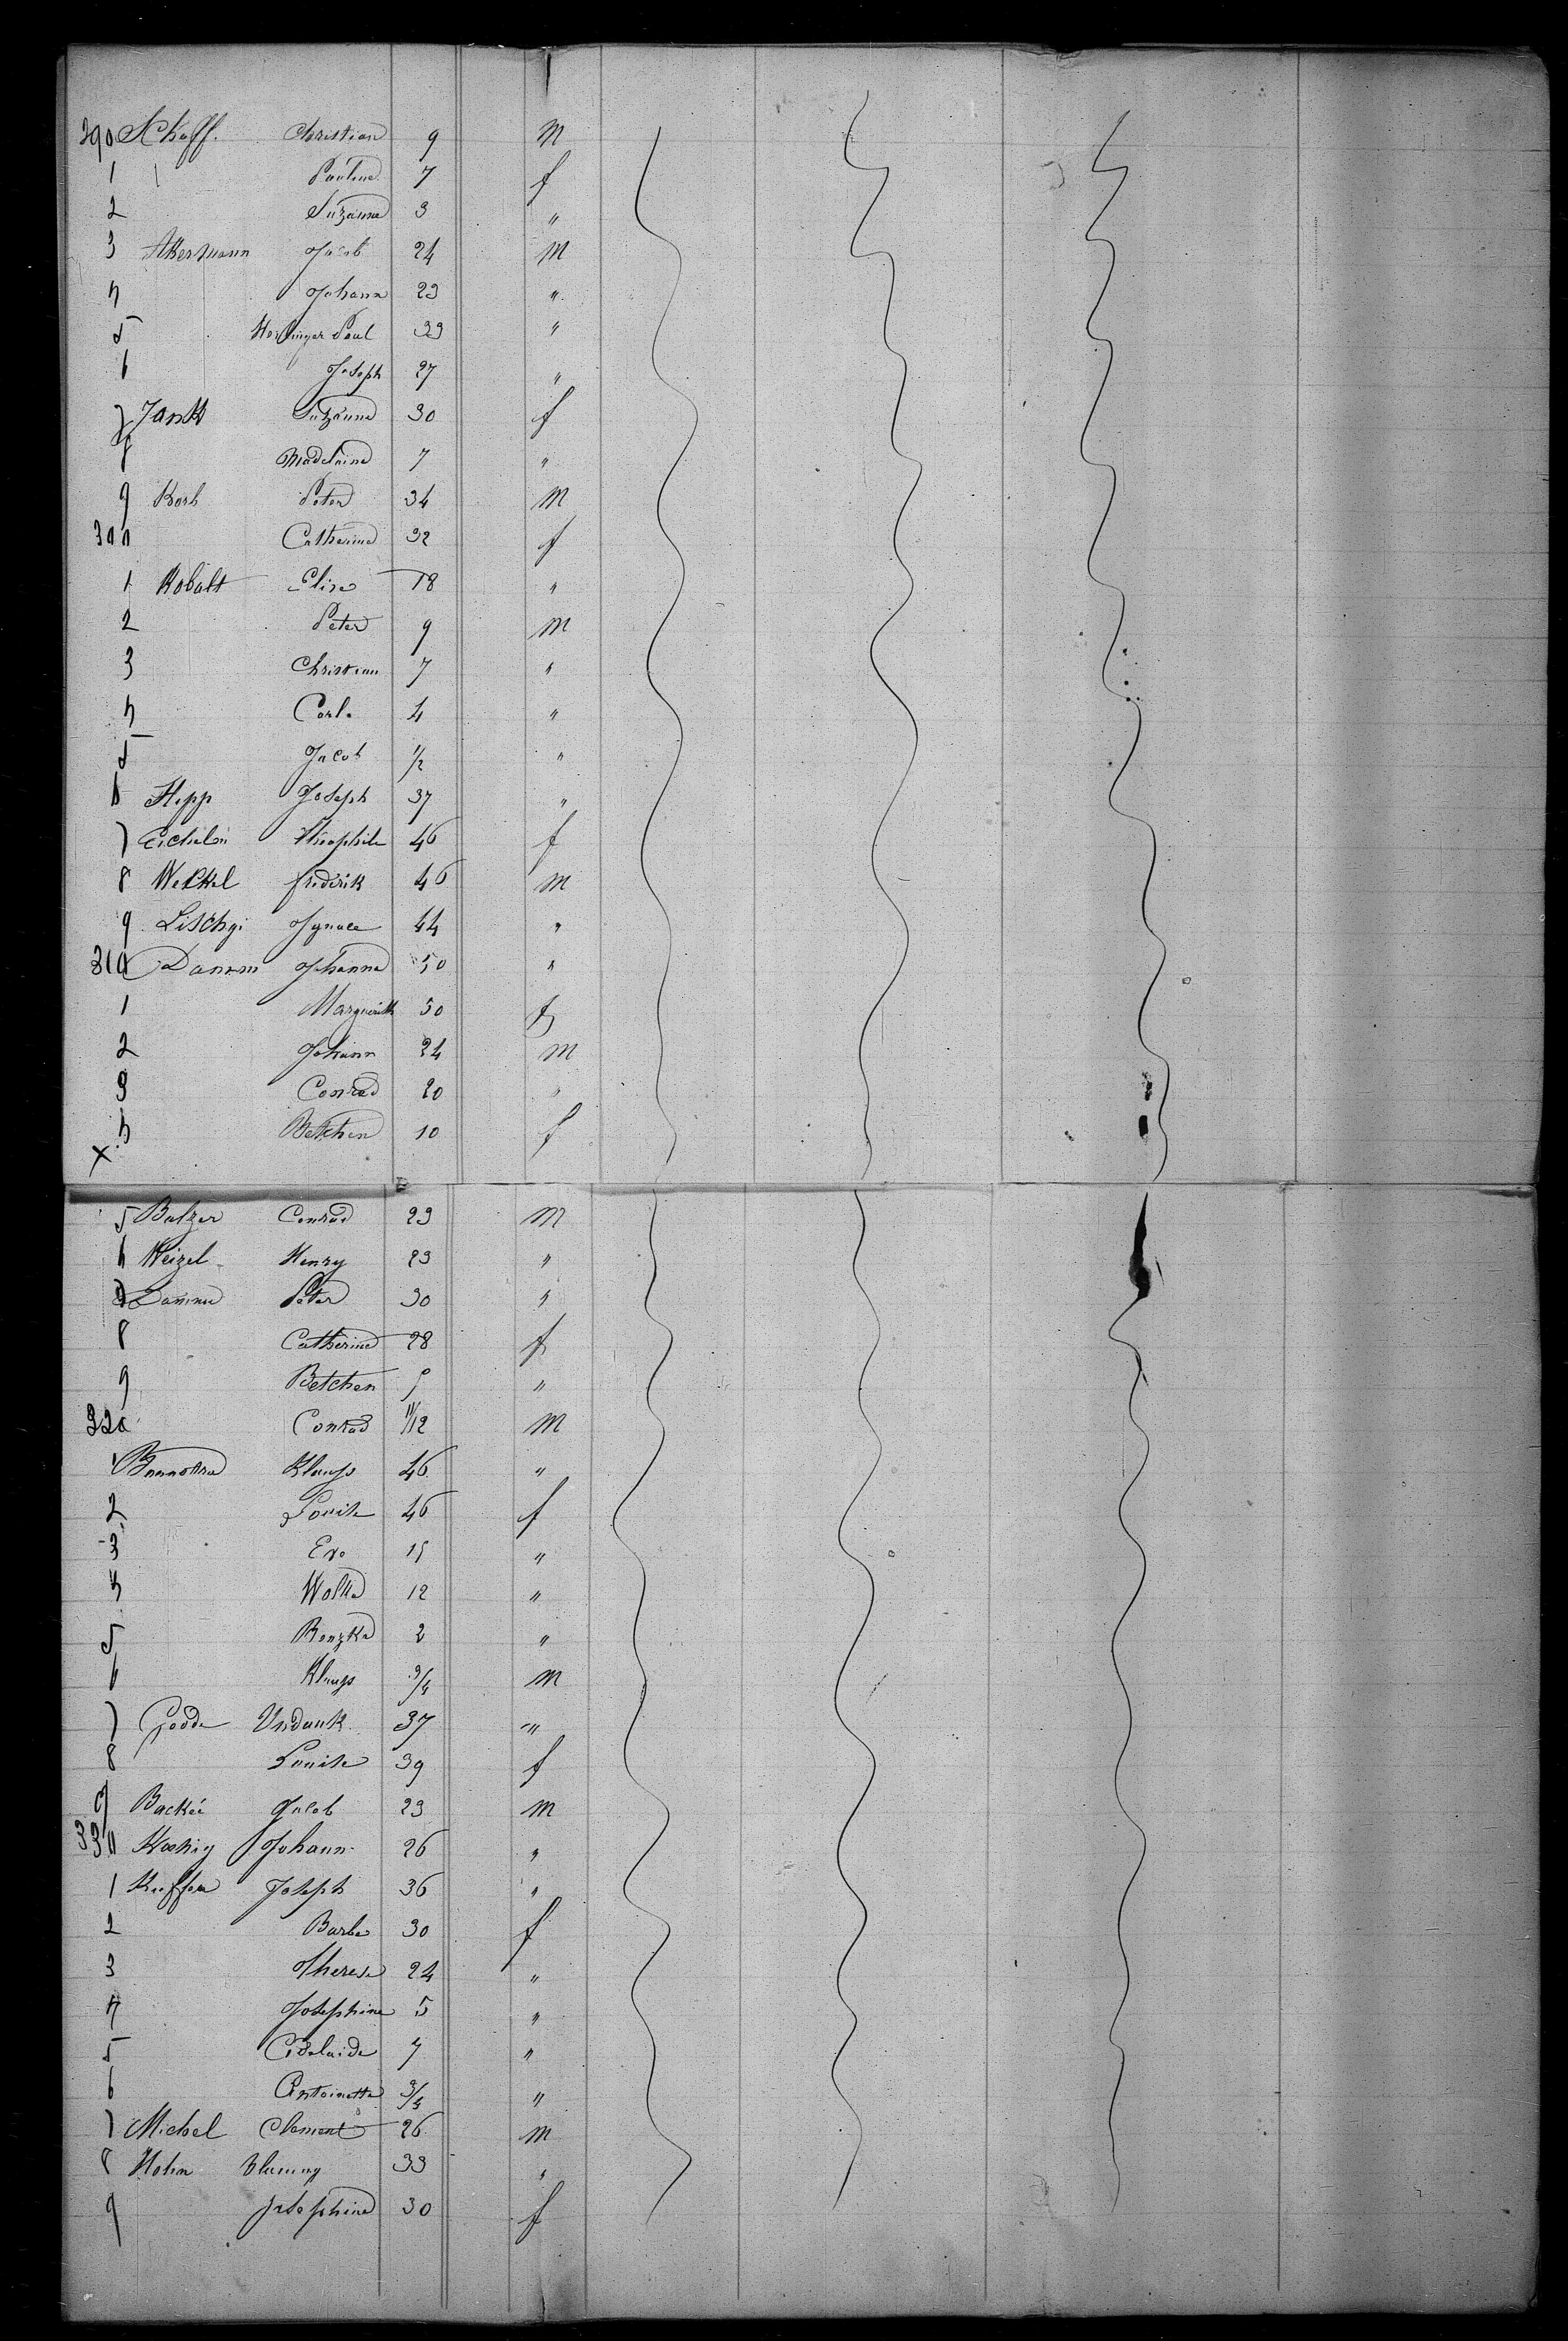 290 Schaff. Christian 9 M
1 Pauline 7 f
2 Suzanna 3 "
3 Akermann Jacob 24 M
4 Johann 23 "
5 Paul 33 "
6 " Joseph 27 "
7 Jank Suzanna 30 f
8 Madeleine 7 "
9 Korb Peter 34 M
300 Catherine 32 f
1 Kobalt Elise 18 "
2 Peter 9 M
3 Christian 7 "
4 Carl 4 "
5 Jacob 1/2 "
6 Hepp Joseph 37 "
7 Theophile 46 f
8 Weckel frederik 46 M
9 Lischgi Ignace 44 "
310 Damm Johanna 50 "
1 Marguerith 50 f
2 Johann 24 M
3 Conrad 20 "
4 Betchen 10 f
x
5 Balzer Conrad 23 M
6 Weizel Henry 23 "
7 Damme Peter 30 "
8 Catherine 28 f
9 Betchen 5 "
320 Conrad 11/12 M
1 Klaups 46 "
2 Louise 46 f
3 Eva 15 "
4 Wolka 12 "
5 Renzka 2 "
6 Klaups 3/4 M
7 Godde Undank 37 "
8 Louise 39 f
9 Backée Jacob 23 M
330 Koenig Johann 26 "
1 Joseph 36 "
2 Barbe 30 f
3 Therese 24 "
4 Josephine 5 "
5 Adelaide 7 "
6 Antoinette 3/4 "
7 Michel Clement 26 M
8 Hohn 33 "
9 Josephine 30 f